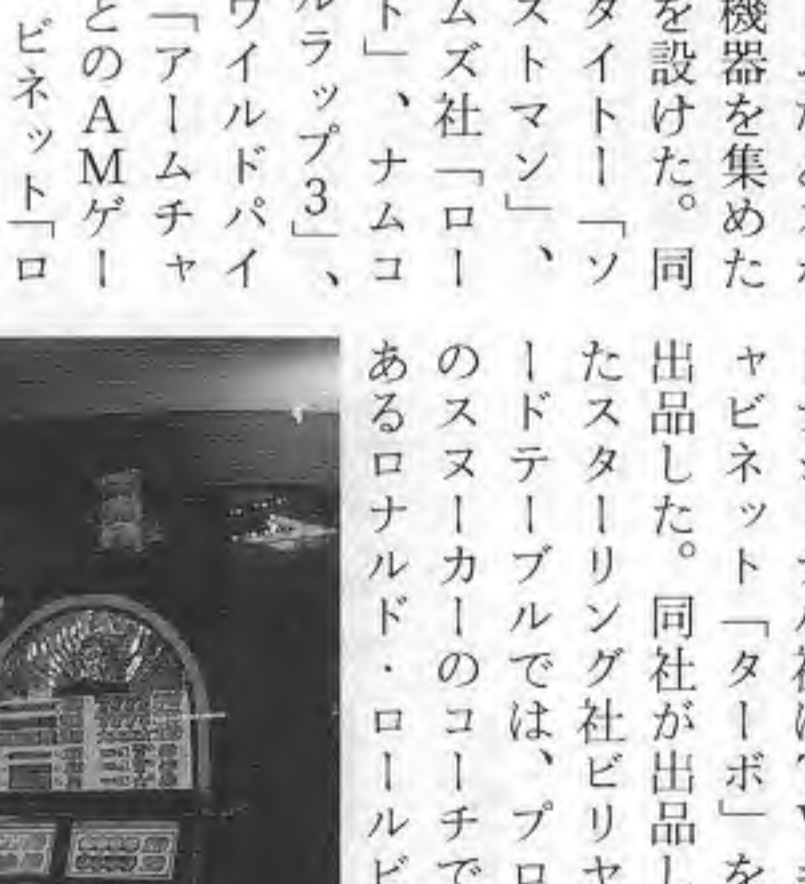 機器を集めた
を設けた。同
タイトー「ソ
ストマン」、
ムズ社「ロー
ト」、ナムコ
ルラップ3」、
ワイルドパイ
「アームチャ
とのAMゲー
ビネット「ロ
ャビネット「ターボ」を
出品した。同社が出品し
たスターリング社ビリヤ
ードテーブルでは、プロ
のスヌーカーのコーチで
あるロナルド・ロールビ